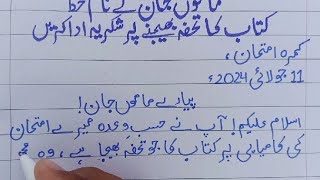 ماموں جان کے نام خط
کتاب کا تحفہ بھیجنے پر شکریہ ادا کریں
کمرہ امتحان،
11 جولائی 2024ء
پیارے ماموں جان!
اسلام علیکم! آپ نے حسب وعدہ میرے امتحان
کی کامیابی پر کتاب کا جو تحفہ بھیجا ہے، وہ